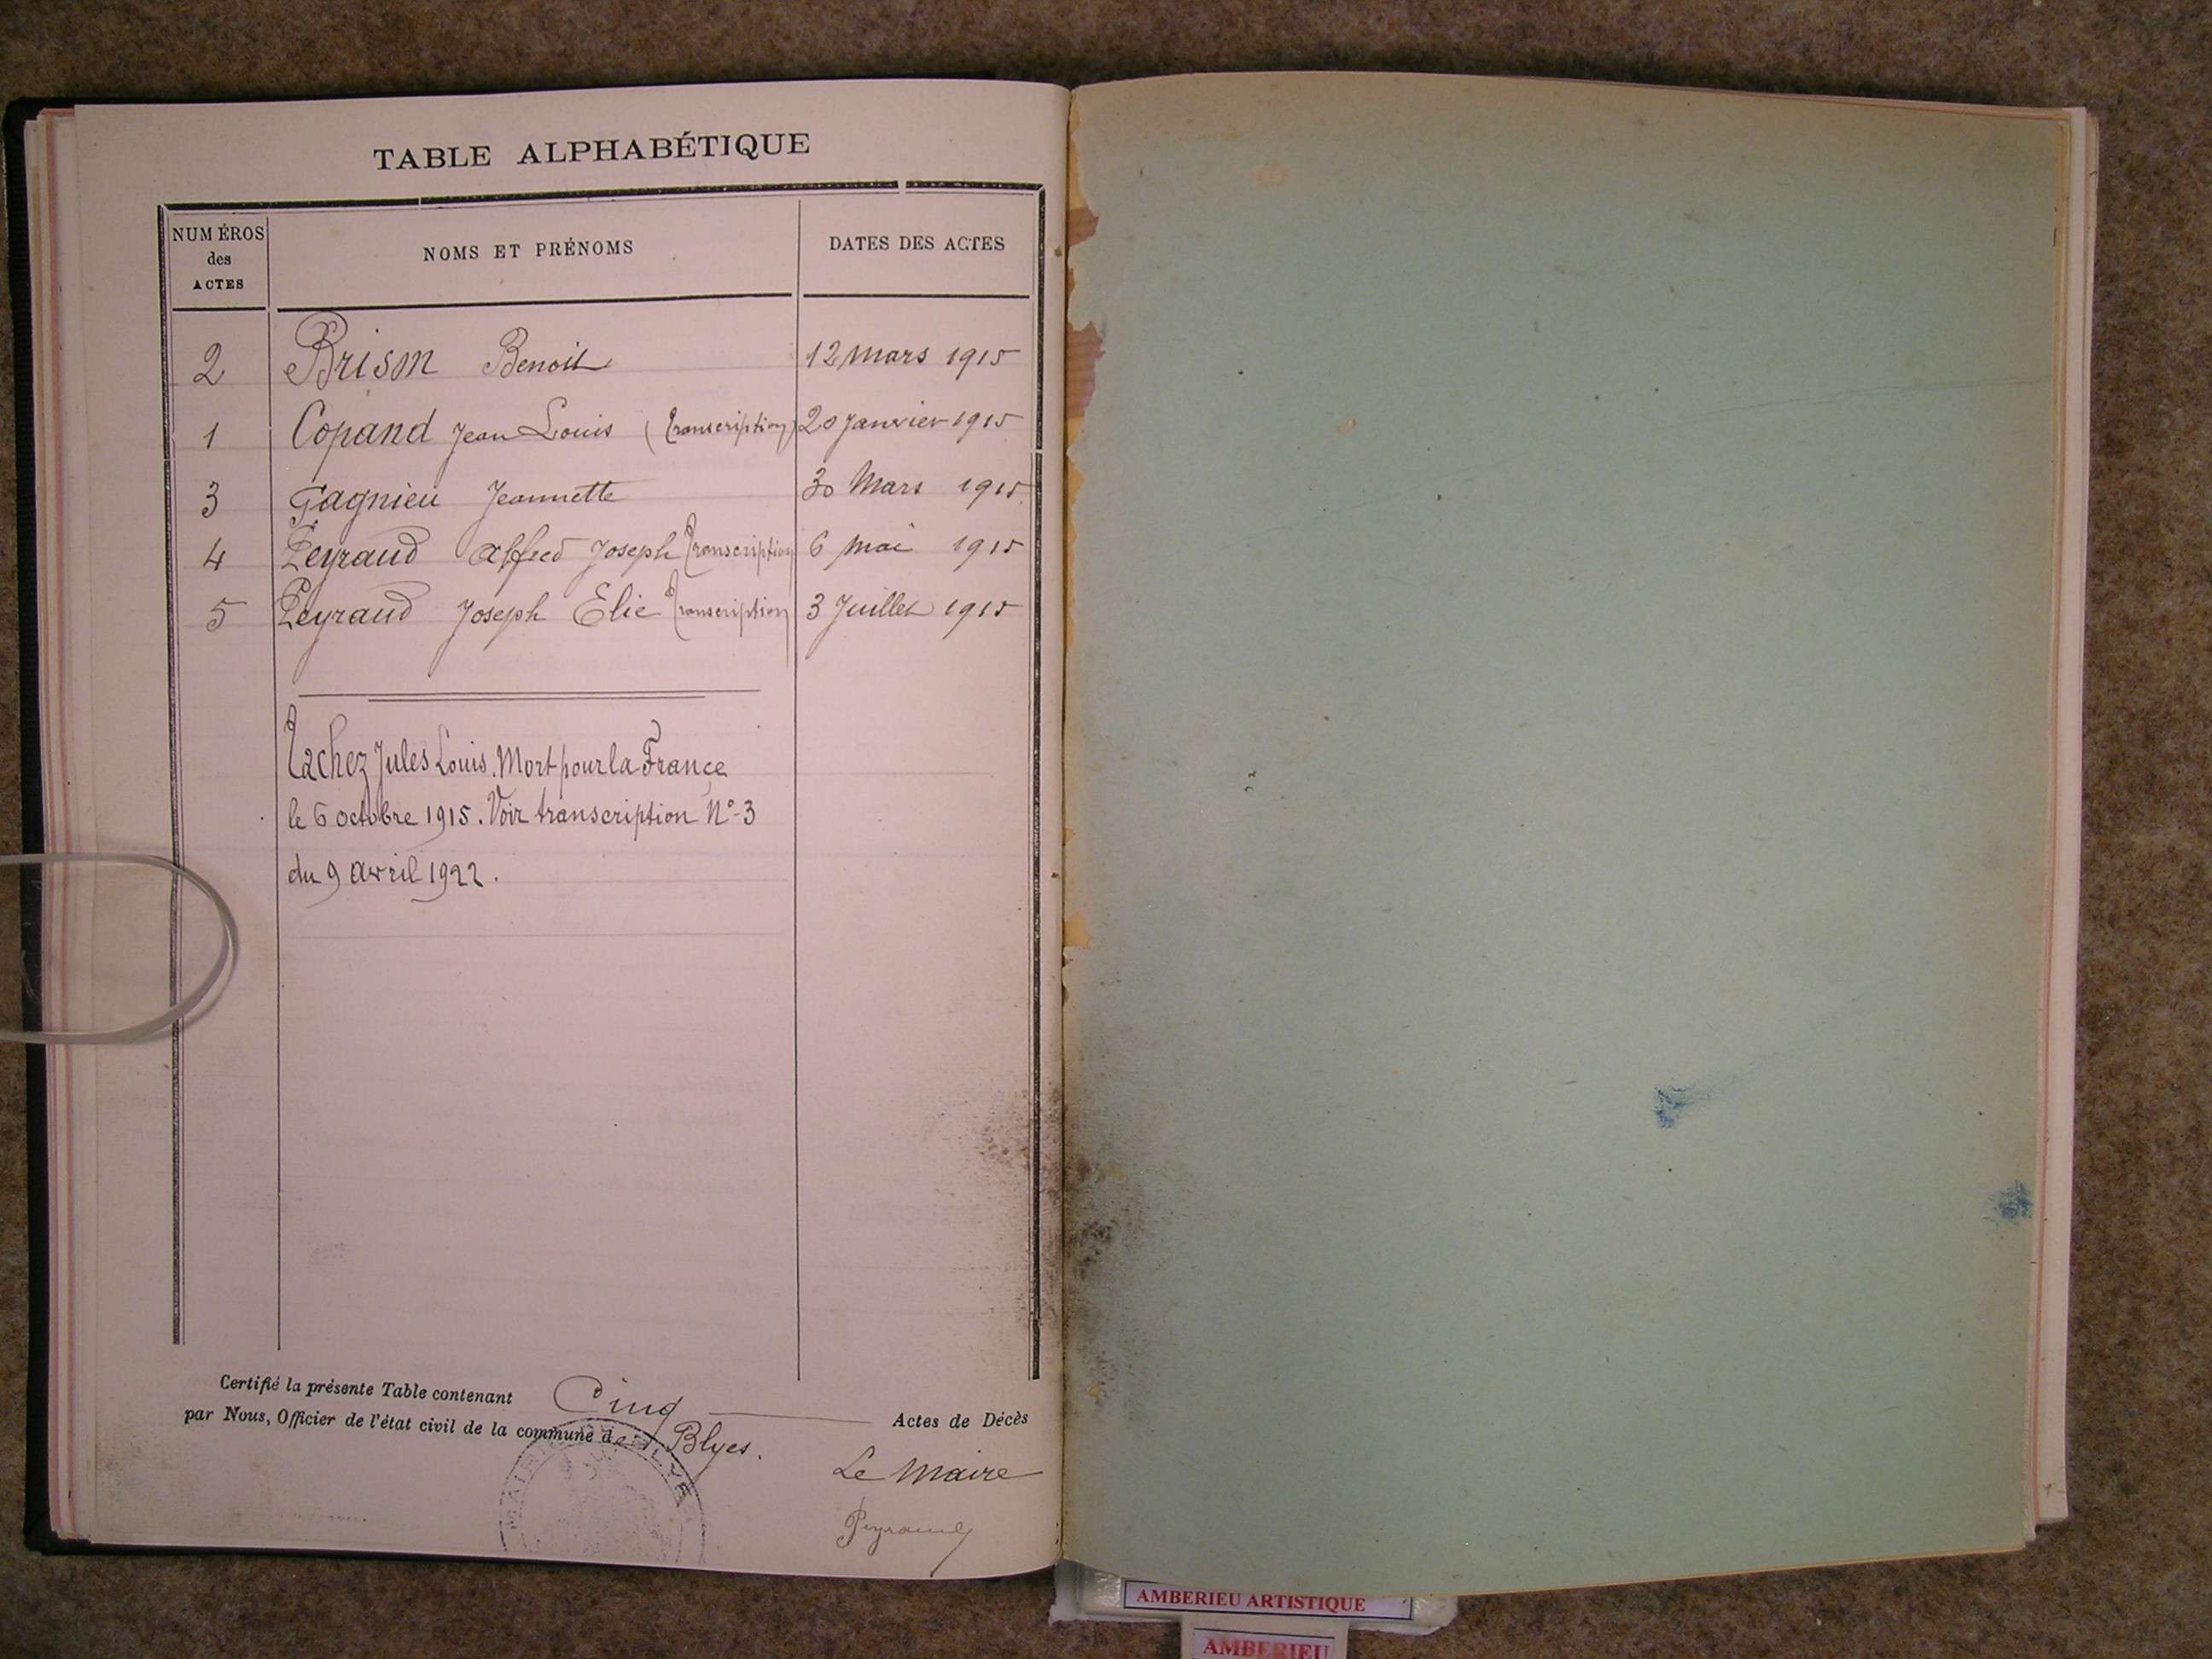 TABLE ALPHABÉTIQUE
NUMÉROS
des
ACTES
NOMS ET PRÉNOMS
DATES DES ACTES
2 Brison Benoit 12 mars 1915
1 Copand Jean Louis (transcription) 20 Janvier 1915
3 Gagnieu Jeannette 30 Mars 1915
4 Peyraud Alfred Joseph Transcription 6 mai 1915
5 Peyraud Joseph Elie Transcription 3 Juillet 1915
Tachez Jules Louis. Mort pour la France
le 6 octobre 1915. Voir transcription N°-3
du 9 avril 1922.
Certifié la présente Table contenant Cinq Actes de Décès
par Nous, Officier de l'état civil de la commune de Blyes.
Le Maire
Peyraud
AMBERIEU ARTISTIQUE
AMBERIEU